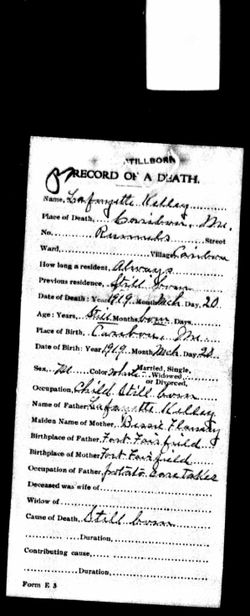 STILLBORN
RECORD OF A DEATH.
Name, Lafayette Kelley
Place of Death, Caribou, Me.
No. Street
Ward, Village, Caribou
How long a resident, Always
Previous residence, Still born
Date of Death: Year, 1919, Month, Mch, Day, 20
Age: Years, Still Months, born Days
Place of Birth, Caribou, Me.
Date of Birth: Year 1919, Month, Mch Day, 20
Sex, M. Color White Married, Single, Widowed or Divorced,
Occupation, Child Still born
Name of Father, Lafayette Kelley
Maiden Name of Mother, Bessie
Birthplace of Father, Fort Fairfield
Birthplace of Mother, Fort Fairfield
Occupation of Father, potato
Deceased was wife of
Widow of
Cause of Death, Still born
Duration,
Contributing cause,
Duration,
Form E 3